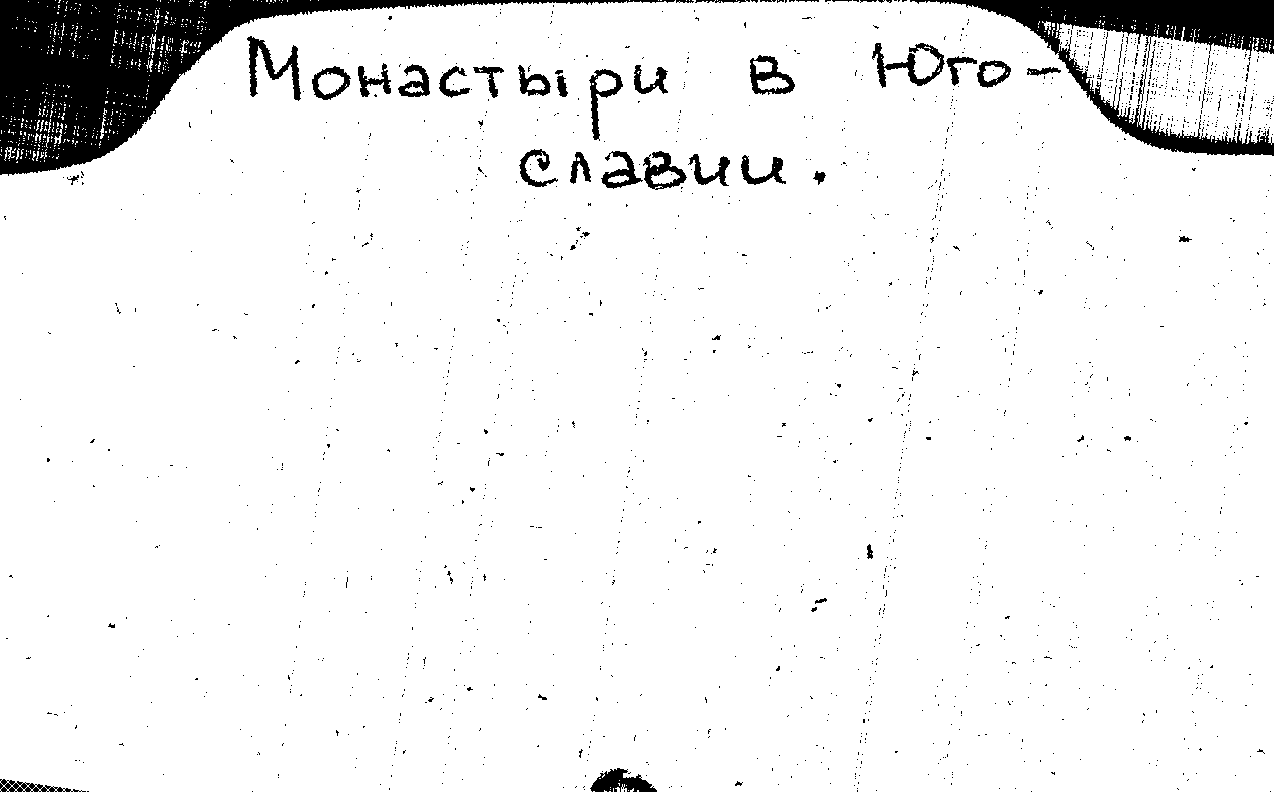 Монастыри в Юго-
славии.